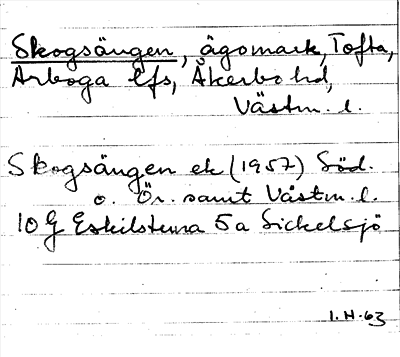 Skogsängen, ägomark, Tofta,
Arboga lfs, Åkerbo hd,
Västm. l.
Skogsängen ek (1957) Söd.
o. Ör. samt Västm. l.
10 G Eskilstuna 5 a Sickelsjö
1. N. 63